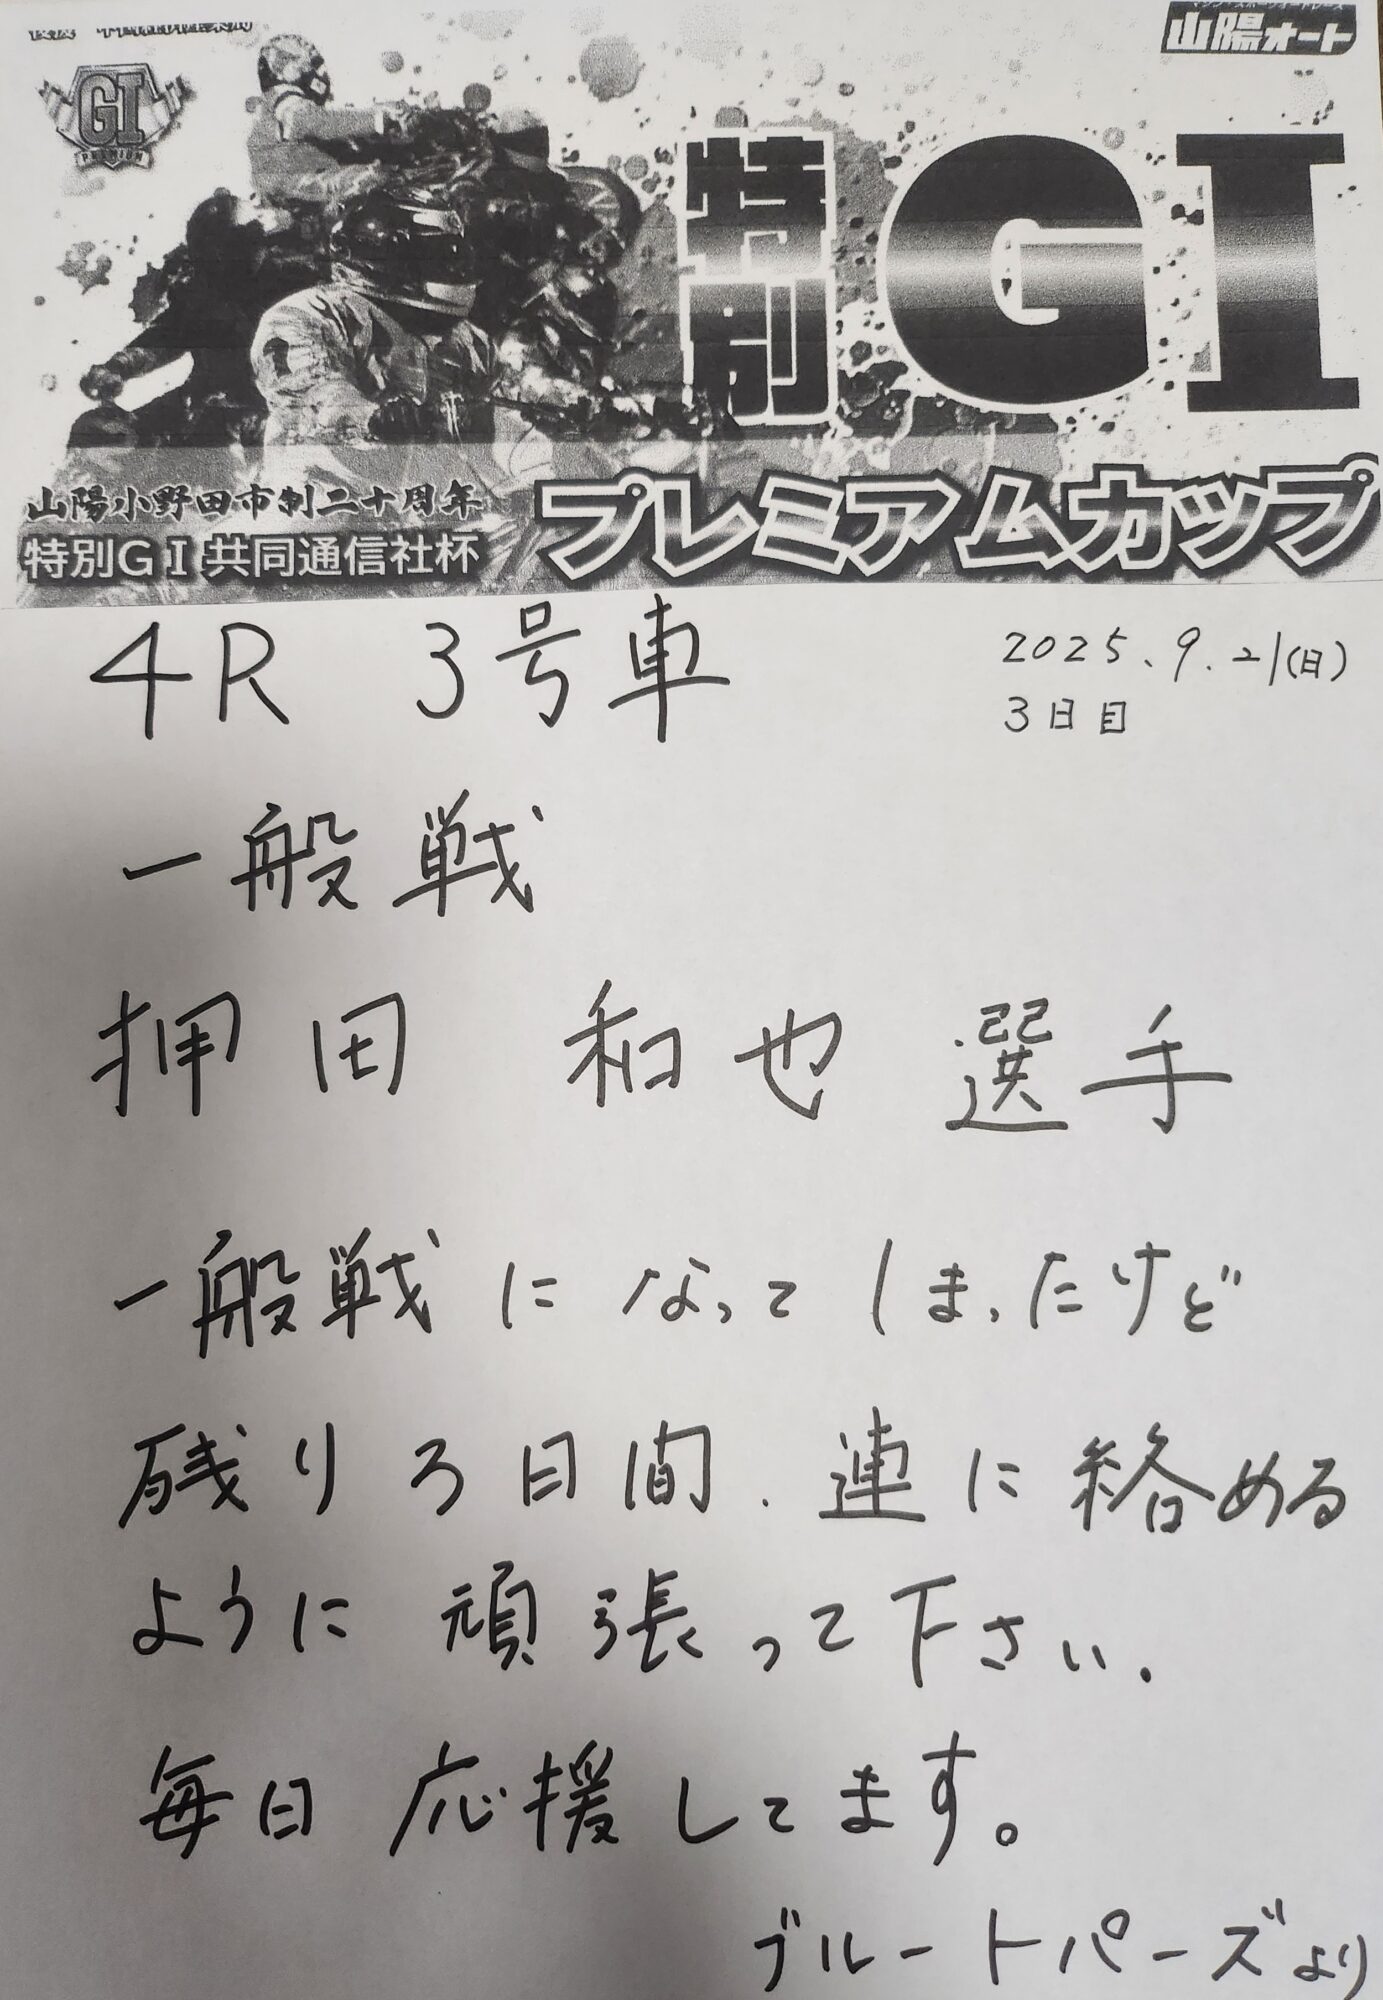 山陽オート
GI
PREMIUM
特別
GI
山陽小野田市制二十周年
特別GⅠ共同通信社杯
プレミアムカップ
4R 3号車
2025.9.21(日)
3日目
一般戦
押田 和也 選手
一般戦になってしまったけど
残り3日間、連に絡める
ように頑張って下さい。
毎日応援してます。
ブルートパーズより